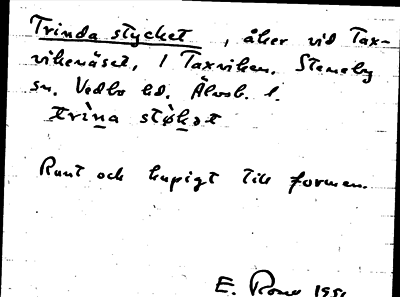 Trinda stycket, åker vid Tax-
vikenäset, 1 Taxviken. Steneby
sn. Vedbo hd. Älvsb. l.
trìna støkət
Runt och kupigt till formen.
E.